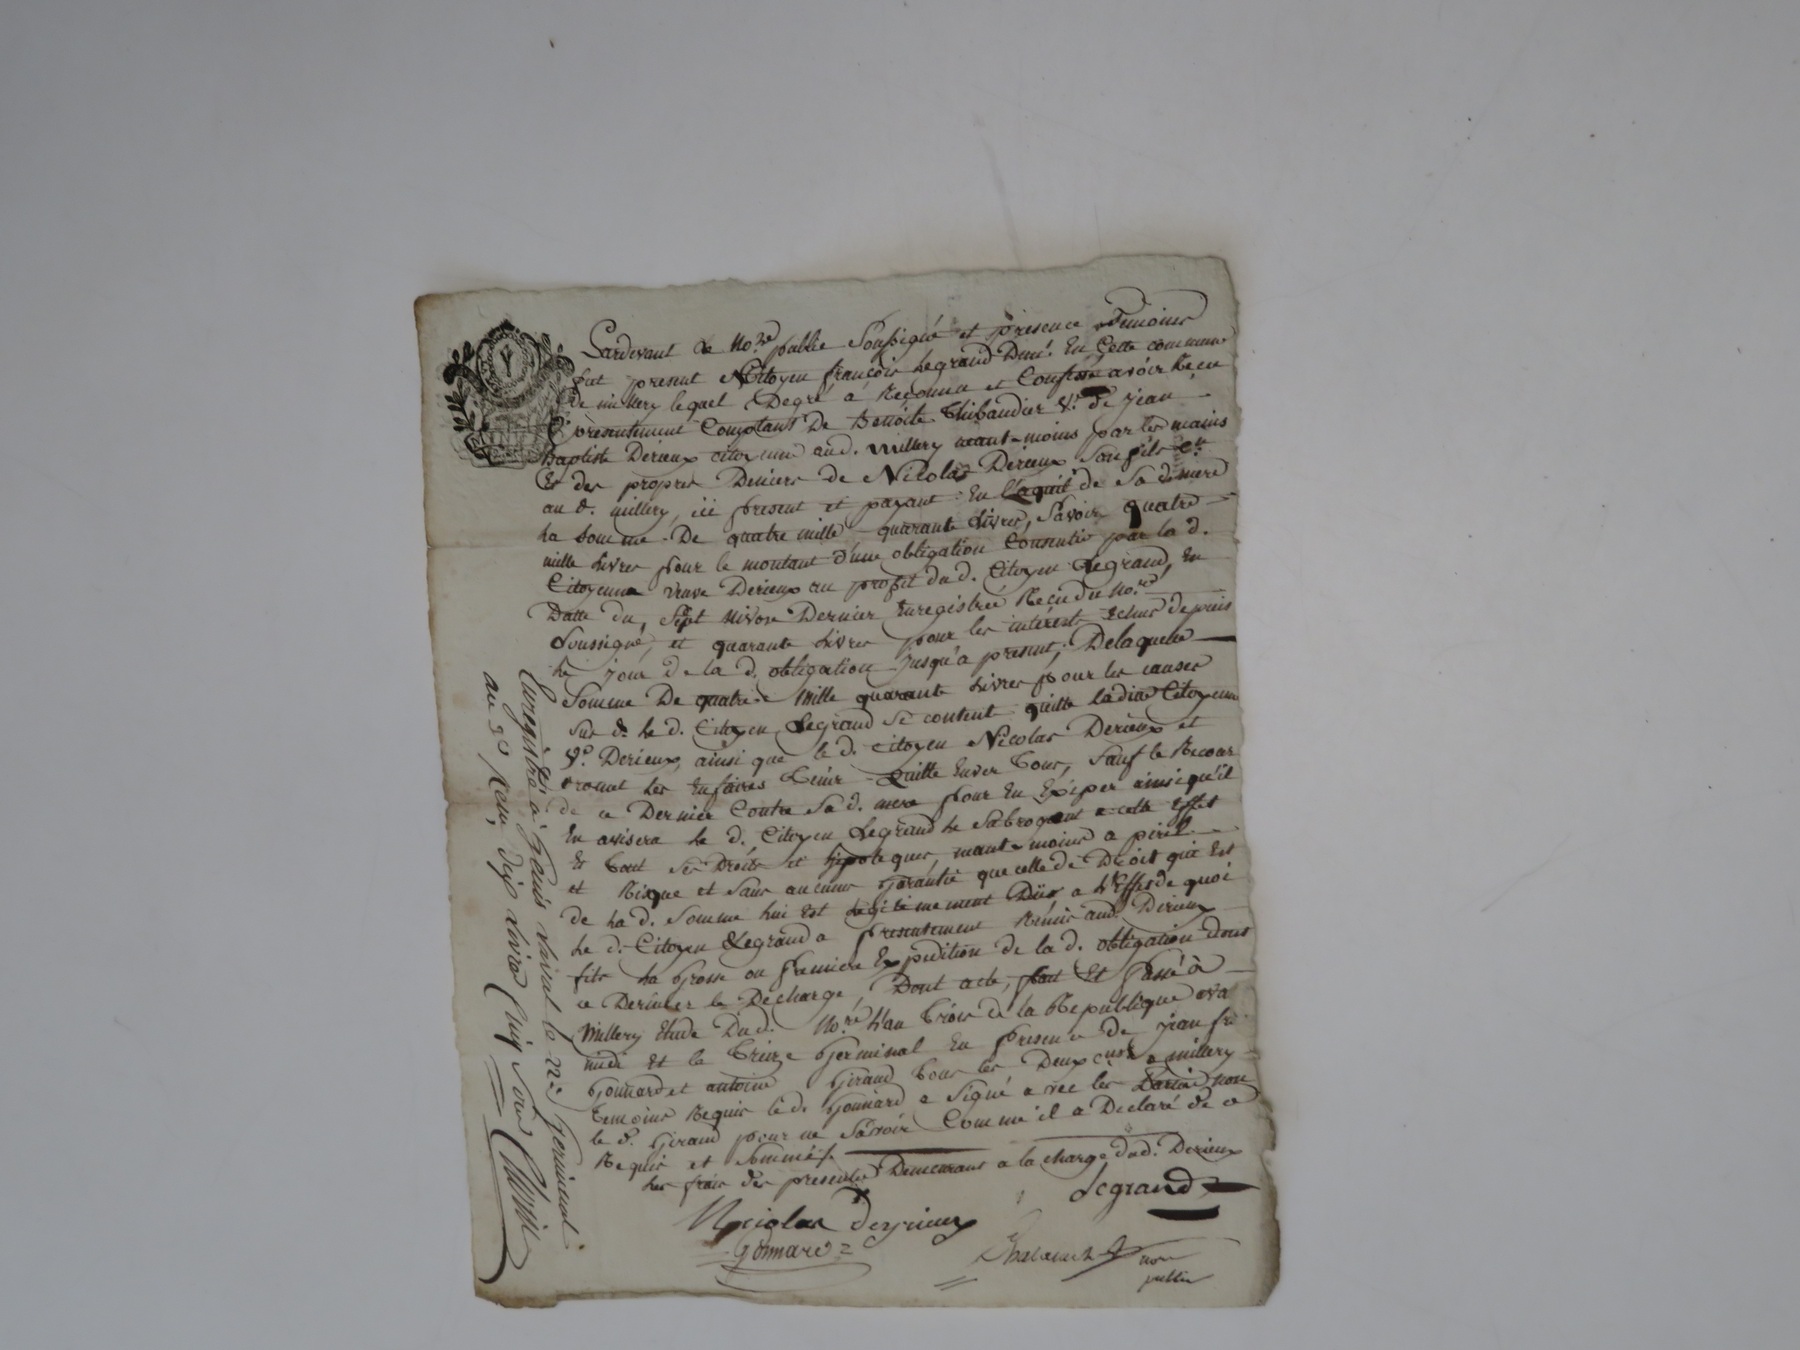 Pardevant Le No.re public Soussigné et présence Temoins
fut present Citoyen françois Legrand Dem.t En Cette commune
de millery lequel De gré a Reconnu et Confessé avoir Reçu
présentement Comptant De Benoite Thibaudier V.e de jean
Baptiste Derieux citoyenne aud. Millery neant-moins par les mains
Et des propres Deniers de Nicolas Derieux Son fils C.en
au d. millery, ici present et payant En l'aquit de Sa d. mere
La Somme De quatre mille quarante Livres, Savoir quatre
mille Livres pour le montant d'une obligation Consentie par la d.
Citoyenne veuve Derieux au profit du d. Citoyen Legrand, En
Datte du, Sept Nivose Dernier Enregistrée Reçu du No.re
Soussigné, et quarante Livres pour les intérests Echus depuis
Le jour De la d. obligation jusqu'a present; De laquelle
Somme De quatre Mille quarante Livres pour les causes
Sus d. Le d. Citoyen Legrand Se content quitte Ladite Citoyenne
V.e Derieux, ainsi que le d. citoyen Nicolas Derieux et
promet Les En faires Tenir Quitte Enver Tous, Sauf le Recour
de ce Dernier Contre Sa d. mere pour En Exiper ainsi qu'il
En avisera Le d. Citoyen Legrand Le Subrogeant a cette Effet
Et Tout Ses Droits et hipoteques, neant-moins a piril
et Risque et Sans aucune Garantie que celle de Droit qui Est
de La d. Somme Lui Est Légitimement Düe, a L'Effet de quoi
Le d. Citoyen Legrand a presentement Remis aud. Derieux
fils La Grosse ou premiere Expedition de la d. obligation Dont
ce Dernier le Décharge, Dont acte, fait Et Passé à
Millery Etude Du d. No.re L'an Trois de la Republique avant
midi Et le Treize Germinal En presence de jean fr.
Gonnard et antoine Giraud Tous les Deux a millery
Temoins Requis Le d. Gonnard a Signé avec les Parties non
le d. Giraud pour ne Savoir Comme il a Declaré de ce
Requis et Sommés.
Les frais des presentes Demeurant a la charge Dud. Derieux
Legrand
Nicolas deyrieux
Gonnard
public
Enregistré à Germinal
au 3.e Reçu Dix Livres Cinq Sous